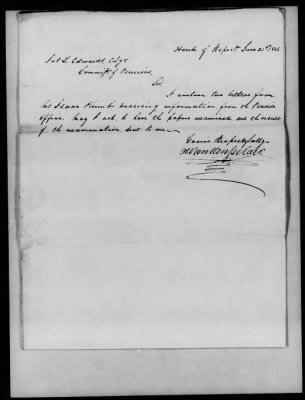 House of Rep.s June 21st 1841
J. L. Edwards Esqr
Commisr of Pensions,
Sir,
I enclose two letters from
Mr Isaac desiring information from the Pension
Office. May I ask to have the papers examined and the result
of the examination sent to me
Yours Respectfully
H Van Rensselaer